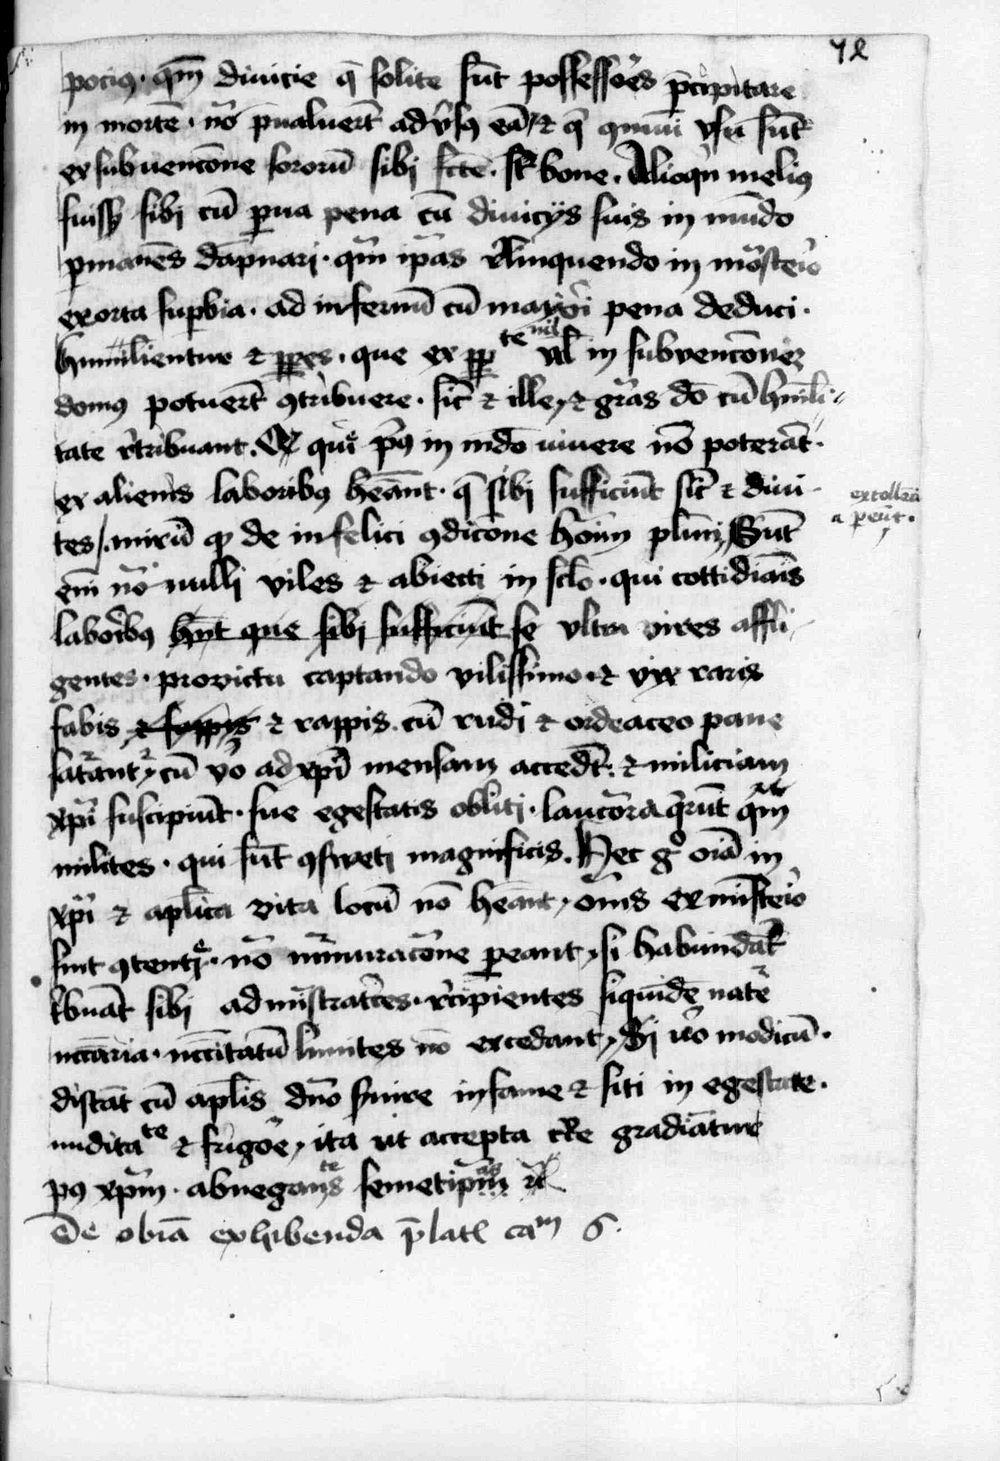 72
pociꝰ · qm̄ diuicie q̄ solite sūt possessores p̄cipitare
in mortē · nō p̄ualuerūt adūsꝰ eā / ⁊ q̄ qmūi usū sūt
ex subuencōne sororū sibi fcte · bone · Alioqn̄ meliꝰ
fuissꝫ sibi cū parua pena cū diuicijs suis in mūdo
pmanēs dāpnari · qm̄ ip̄as relinquendo in mōsterio
exorta supbia · ad infernū cū maiori pena deduci ·
humilientur ⁊ · que ex ꝑꝑte nil ul in subuencōnē
domꝰ potuerūt ꝯtribuere · sic ⁊ ille / ⁊ grās dō cū hūili
tate rtribuant · Et qui pꝰ in mdō uiuere nō poterāt ·
ex alienis laboribꝰ heānt · q̄ sibi sufficiūt sic ⁊ diui
tes / mirū qꝫ de infelici ꝯdicōne hoīm plurimi / Sūt
em̄ nōnulli viles ⁊ abiecti in sclo · qui cottidianis
extolleꝭ
a peūt ·
laboribꝰ hn̄t que sibi sufficiūt se ultra vires affli
gentes · pro victu captando vilissimo · ⁊ vix raris
fabis ⁊ rappis cū rudi ⁊ ordeaceo pane
satrantr / cū vo ad xpī mensam accedūt · ⁊ miliciam
xpī suscipiūt · sue egestatis obliti · lauciora q̄rūt qm̄
milites · qui sūt ꝯsweti magnificis · Hec gͦ oiā in
xpī ⁊ aplica vita locū nō heānt / oms ex mīsterio
sint ꝯtenti · nō murmuracōne peant / si habundāt
tbuāt sibi admīstratrices · rcipientes siquidē nate
nccāria · nccītatū limites nō excedant / Si uo modicū ·
distāt cū aplis dnō seruire in fame ⁊ siti in egestate ·
nuditate ⁊ frigore / ita ut accepta cce gradiātur
pꝰ xpm̄ · abnegantes semetipas ⁊c
De obiā exhibenda p̄latꝭ cam 6 ·